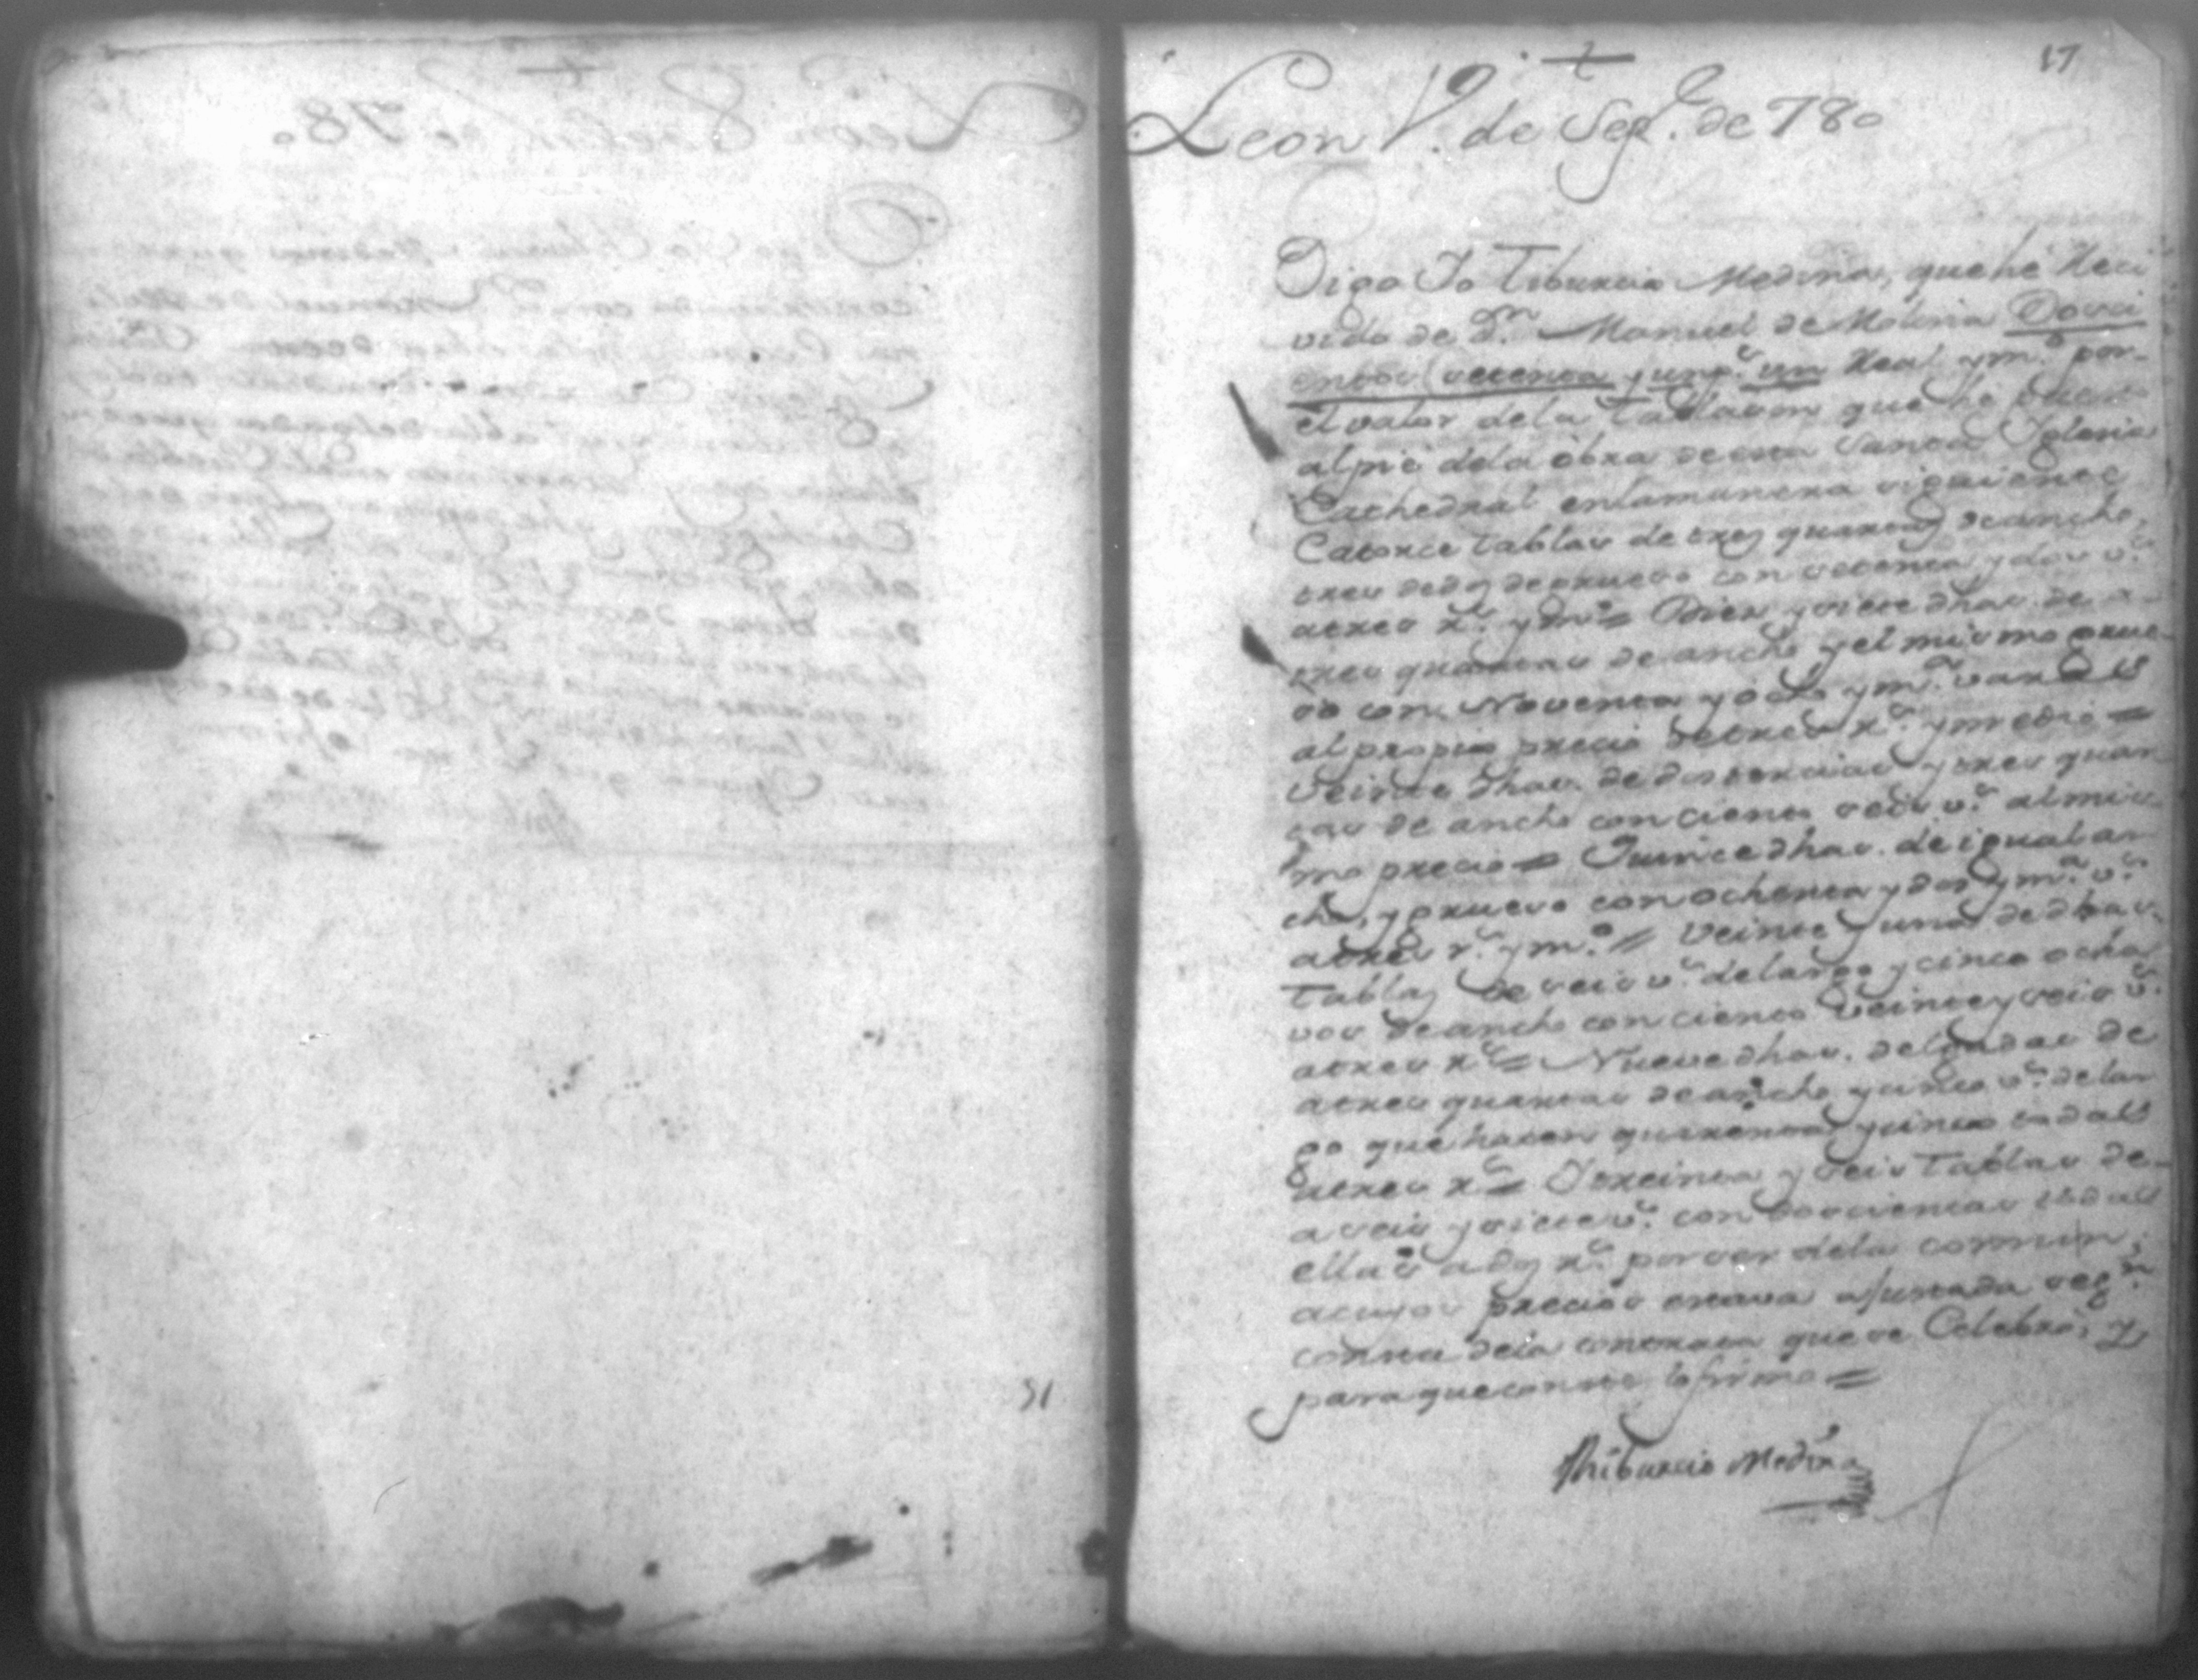 17
Leon 1.º de Sep.e de 780
Digo Yo Tiburcio Medina, que hé Reci
vido de d.n Manuel de Molina Dosci
entos setenta y un p.s un Real y m.º por
el valor dela tablason que hé puesto
al pié dela obra de esta Santa Yglesia
Cathedral enlamanera siguiente
Catorce tablas de tres quartas de ancho,
tres dedos de grueso con setenta y dos v.s
atres r.s y m.º = Diez y siete dhas. de a
tres quartas de ancho y el mismo grue
so con Noventa y ocho y m.a varas
al propio precio de tres r.s y medio =
Veinte dhas. de dos tercias y tres quar
tas de ancho con ciento seis v.s al mis
mo precio = Quince dhas. de igual an
cho, y grueso con ochenta y dos y m.a v.s
atres r.s y m.º = Veinte y una de dhas.
tablas de seis v.s de largo y cinco ocha
vos de ancho con ciento veinte y seis v.s
atres r.s = Nueve dhas. delgadas de
atres quartas de ancho y cinco v.s de lar
go que hacen quarenta y cinco todas
atres r.s = Y treinta y seis tablas de
a seis y siete v.s con doscientas todas
ellas a dos r.s por ser dela comun,
acuyos precios estava ajustada seg.n
consta dela contrata que se Celebró; y
para que conste lo firmo =
Thiburcio Medina
51